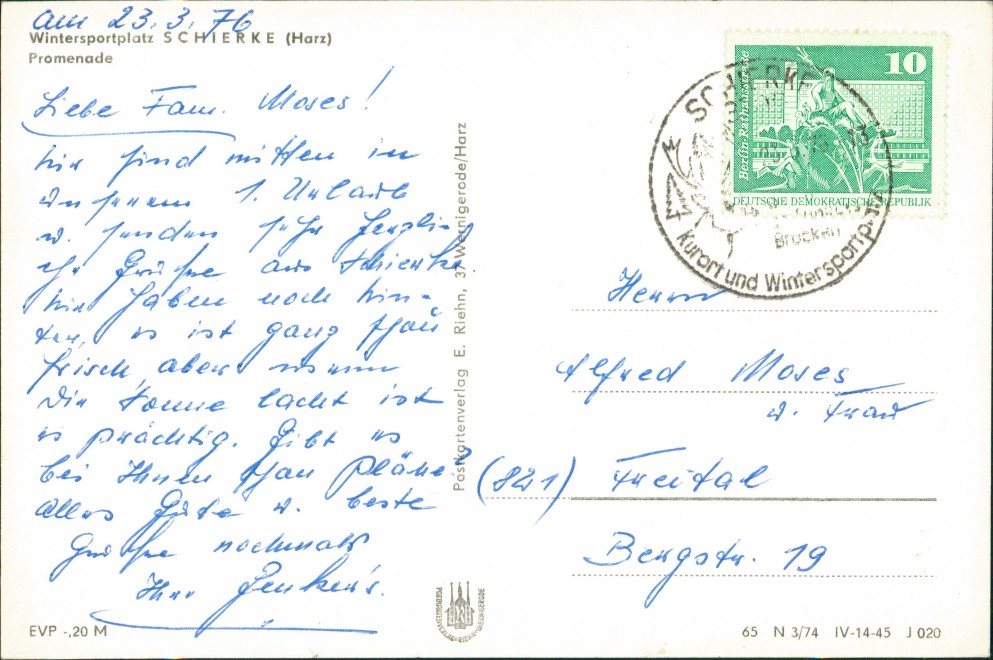 am 23.3.76
Wintersportplatz SCHIERKE (Harz)
Promenade
Liebe Fam. Moses!
Wir sind mitten in
unserem 1. Urlaub
u. senden sehr herzlich
ihr Grüße aus Schierke
Wir haben noch Win-
ter, es ist ganz schön
frisch, aber wenn
die Sonne lacht ist
es prächtig. Gibt es
bei Ihnen schon Pläne?
Alles Gute u. beste
Grüße nochmals
Ihre Henker's.
EVP -,20 M
Postkartenverlag E. Riehn, 37 Wernigerode/Harz
10
Berlin-Rathausstraße
DEUTSCHE DEMOKRATISCHE REPUBLIK
SCHIERKE
Brocken
Kurort und Wintersportplatz
Herrn
Alfred Moses
u. Frau
(821) Freital
Bergstr. 19
65 N 3/74 IV-14-45 J 020